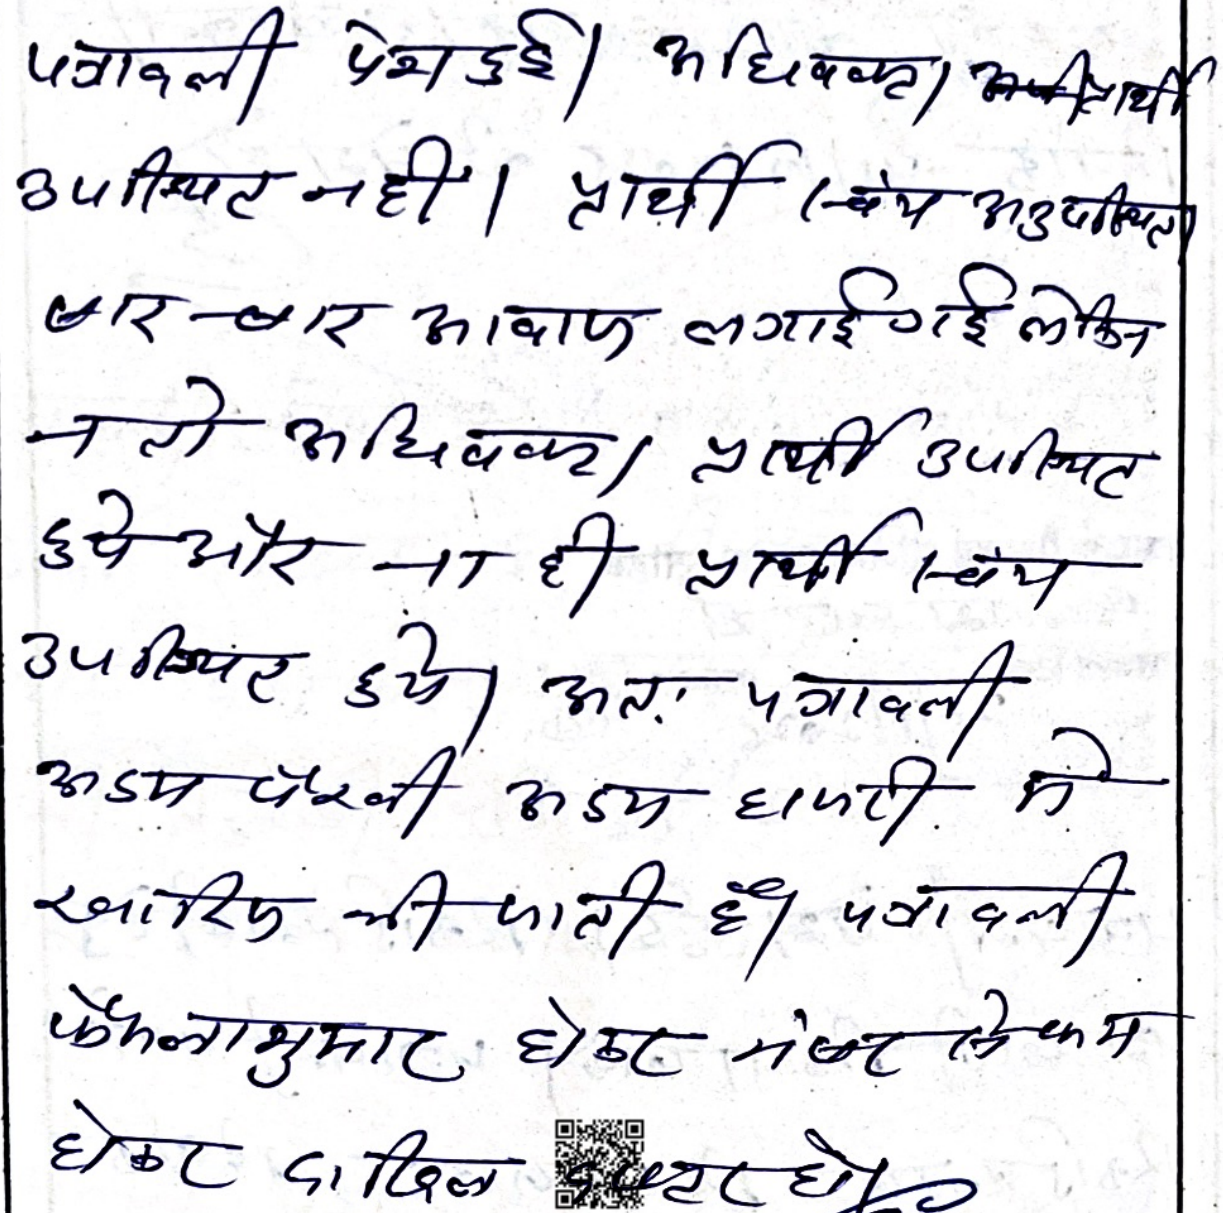 पत्रावली पेश हुई। अधिवक्ता प्रार्थी
उपस्थित नहीं। प्रार्थी स्वंय अनुपस्थित।
बार-बार आवाज लगाई गई लेकिन
न तो अधिवक्ता प्रार्थी उपस्थित
हुये और ना ही प्रार्थी स्वंय
उपस्थित हुये। अतः पत्रावली
अदम पैरवी अदम हाजरी मे
खारिज की जाती है। पत्रावली
फैसलाशुमार होकर नंबर से कम
होकर दाखिल दफ्तर हो।